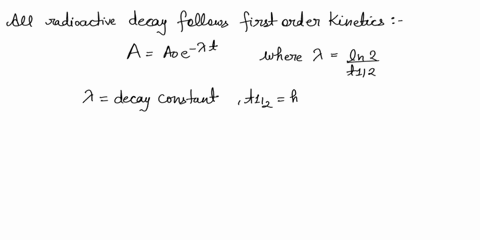 All radioactive decay follows first order Kinetics :-
A = A₀e^{-λt} where λ = ln 2 / t1/2
λ = decay constant , t1/2 = h